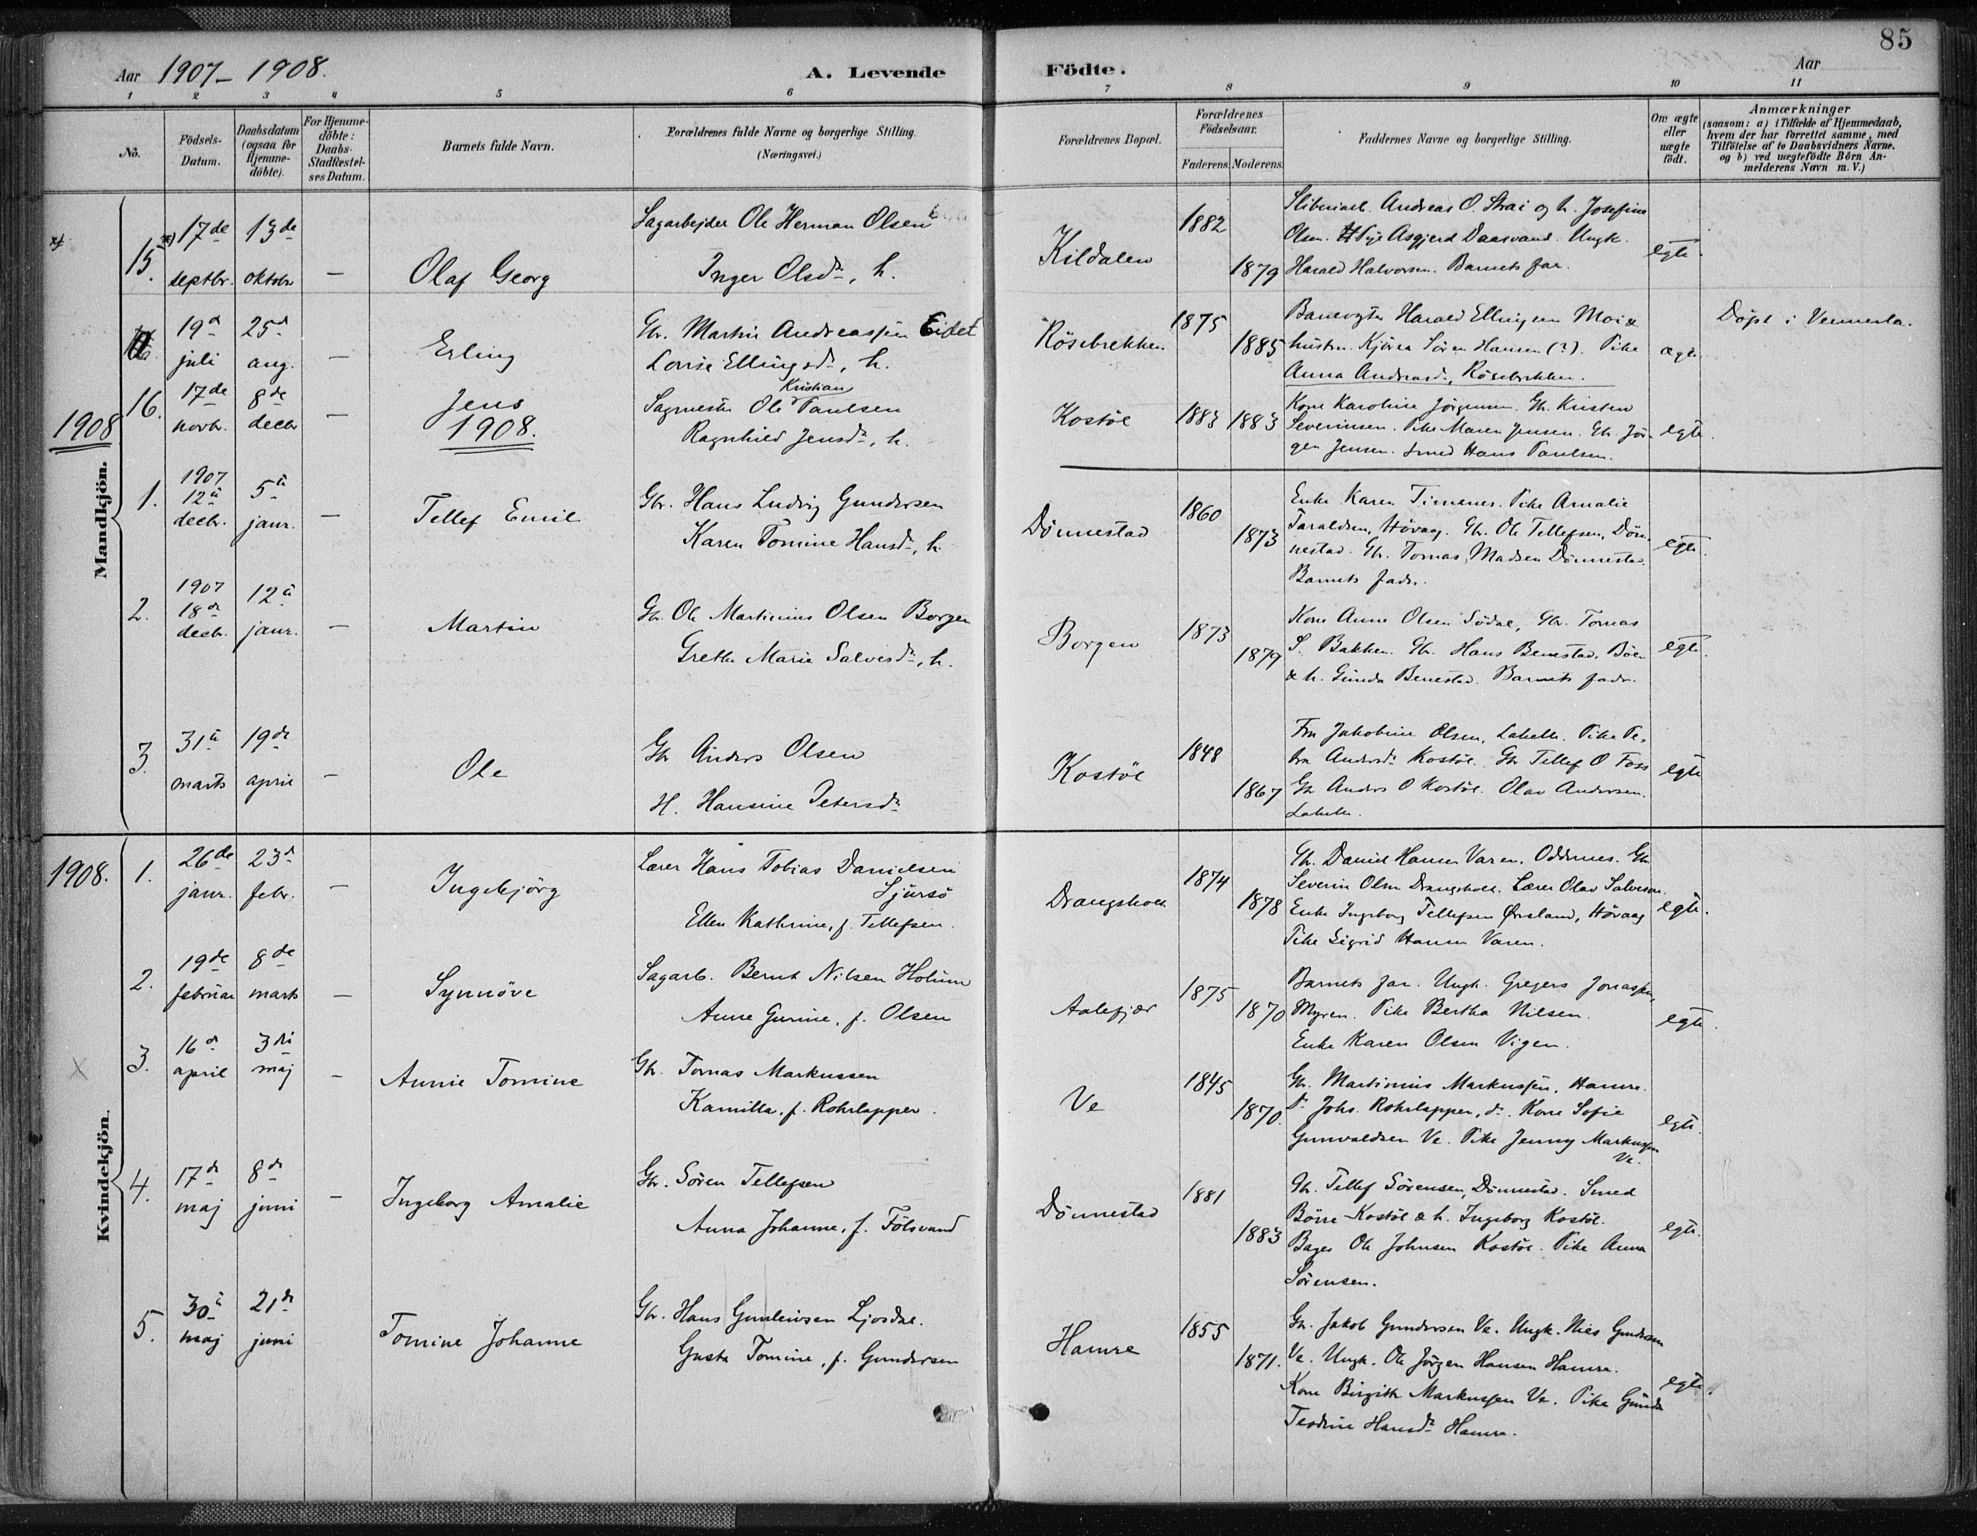 85
Aar 1907 - 1908.
A. Levende Födte.
Aar
1 2 3 4 5 6 7 8 9 10 11
No.
Födsels-Datum.
Daabsdatum (ogsaa for Hjemme-döbte).
For Hjemme-döbte: Daabs-Stadfæstel-ses Datum.
Barnets fulde Navn.
Forældrenes fulde Navne og borgerlige Stilling. (Næringsvei.)
Forældrenes Bopæl.
Forældrenes Födselsaar.
Faderens. Moderens.
Faddernes Navne og borgerlige Stilling.
Om ægte eller uægte födt.
Anmærkninger
(saasom: a) i Tilfælde af Hjemmedaab,
hvem der har forrettet samme, med
Tilföielse af to Daabsvidners Navne,
og b) ved uægtefödte Börn An-
melderens Navn m. V.)
Mandkjön.
15. 17de septbr. 13de oktober — Olaf Georg
Sagarbejder Ole Herman Olsen
Inger Olsdr, h.
Kildalen 1882 1879
Andreas O. Strai og h. Josefine
Olsen. Pige Asgjerd Daasvand. Ungk.
Harald Halvorsen. Barnets far.
egte.
19d juli 25d aug. — Erling
Gbr. Martin Andreassen Eidet
Lovise Ellingsdr, h.
Rösebrekken 1875 1885
Banevogter Harald Ellingsen Moi &
hustru Kjörea Sören Hansen (?). Pike
Anna Andreasdr, Rösebrekken.
ægte
Döpt i Vennesla.
16. 17de novbr. 8de decbr — Jens
Sagmester Ole Kristian Paulsen
Ragnhild Jensdr, h.
Kostöl 1883 1883
Kone Karoline Jörgensen. Gb. Kristen
Severinsen. Pike Maren Jensen. Gb. Jör-
gen Jensen. Smed Hans Paulsen.
egte.
1908
1908.
1. 1907 12te decbr. 5te janr. — Tellef Emil
Gbr. Hans Ludvig Gundersen
Karen Tomine Hansdr, h.
Dönnestad 1860 1873
Enke Karen Timenes. Pike Amalie
Taraldsen, Hövaag. Gb. Ole Tellefsen, Dön-
nestad. Gb. Tomas Madsen Dönnestad.
Barnets fader.
egte.
2. 1907 18de decbr. 12te janr. — Martin
Gb. Ole Martinius Olsen Borgen
Grethe Marie Salvesdr, h.
Borgen 1873 1879
Kone Anne Olsen Södal, Gb. Tomas
S. Bakken. Gb. Hans Benestad, Böen
& h. Gunda Benestad. Barnets fader.
egte.
3. 31te marts 19de april — Ole
Gb Anders Olsen
H. Hansine Petersdr
Kostöl 1848 1867
Fru Jakobine Olsen, Lahelle. Pike Pe-
tra Andersdr Kostöl. Gb Tellef O Foss
Gb Anders O Kostöl. Olav Andersen.
Lahelle.
egte
1908.
Kvindekjön.
1. 26de janr. 23d febr. — Ingebjörg
Lærer Hans Tobias Danielsen
Sjursö
Ellen Kathrine, f. Tellefsen.
Drangsholt 1874 1878
Gb. Daniel Hansen Varen. Oddernes. Gb
Severin Olsen Drangsholt. Lærer Olav Salvesen.
Enke Ingeborg Tellefsen Örsland, Hövaag
Pike Sigrid Hansen Varen.
egte.
2. 19de februar 8de marts — Synnöve
Sagarb. Bernt Nilsen Holum
Anne Gurine, f. Olsen
Aalefjær 1875 1870
Barnets far. Ungk. Gregers Jonassen,
Myren. Pike Bertha Nilsen.
Enke Karen Olsen Vigen.
egte.
3. 16d april 3die maj — Annie Tomine
Gb. Tomas Markussen
Kamilla, f. Rohrlapper.
Ve 1845 1870.
Gb. Martinius Markussen, Hamre.
Do Johs. Rohrlapper, do. Kone Sofie
Gunvaldsen Ve. Pike Jenny Markussen
Ve.
egte.
4. 17d maj 8d juni — Ingeborg Amalie
Gb. Sören Tellefsen
Anna Johanne, f. Fölsvand
Dönnestad 1881 1883
Gb. Tellef Sörensen, Dönnestad. Smed
Börre Kostöl & h. Ingeborg Kostöl.
Bager Ole Johnsen Kostöl. Pike Anna
Sörensen.
egte.
5. 30te maj 21de juni Tomine Johanne
Gb. Hans Gunleivsen Ljosdal.
Gusta Tomine, f. Gundersen
Hamre 1855 1871.
Gb. Jakob Gundersen Ve. Ungk. Niels Gundersen
Ve. Ungk. Ole Jörgen Hansen Hamre.
Kone Birgith Markussen Ve. Pike Gunda
Teodine Hansdr Hamre.
egte.